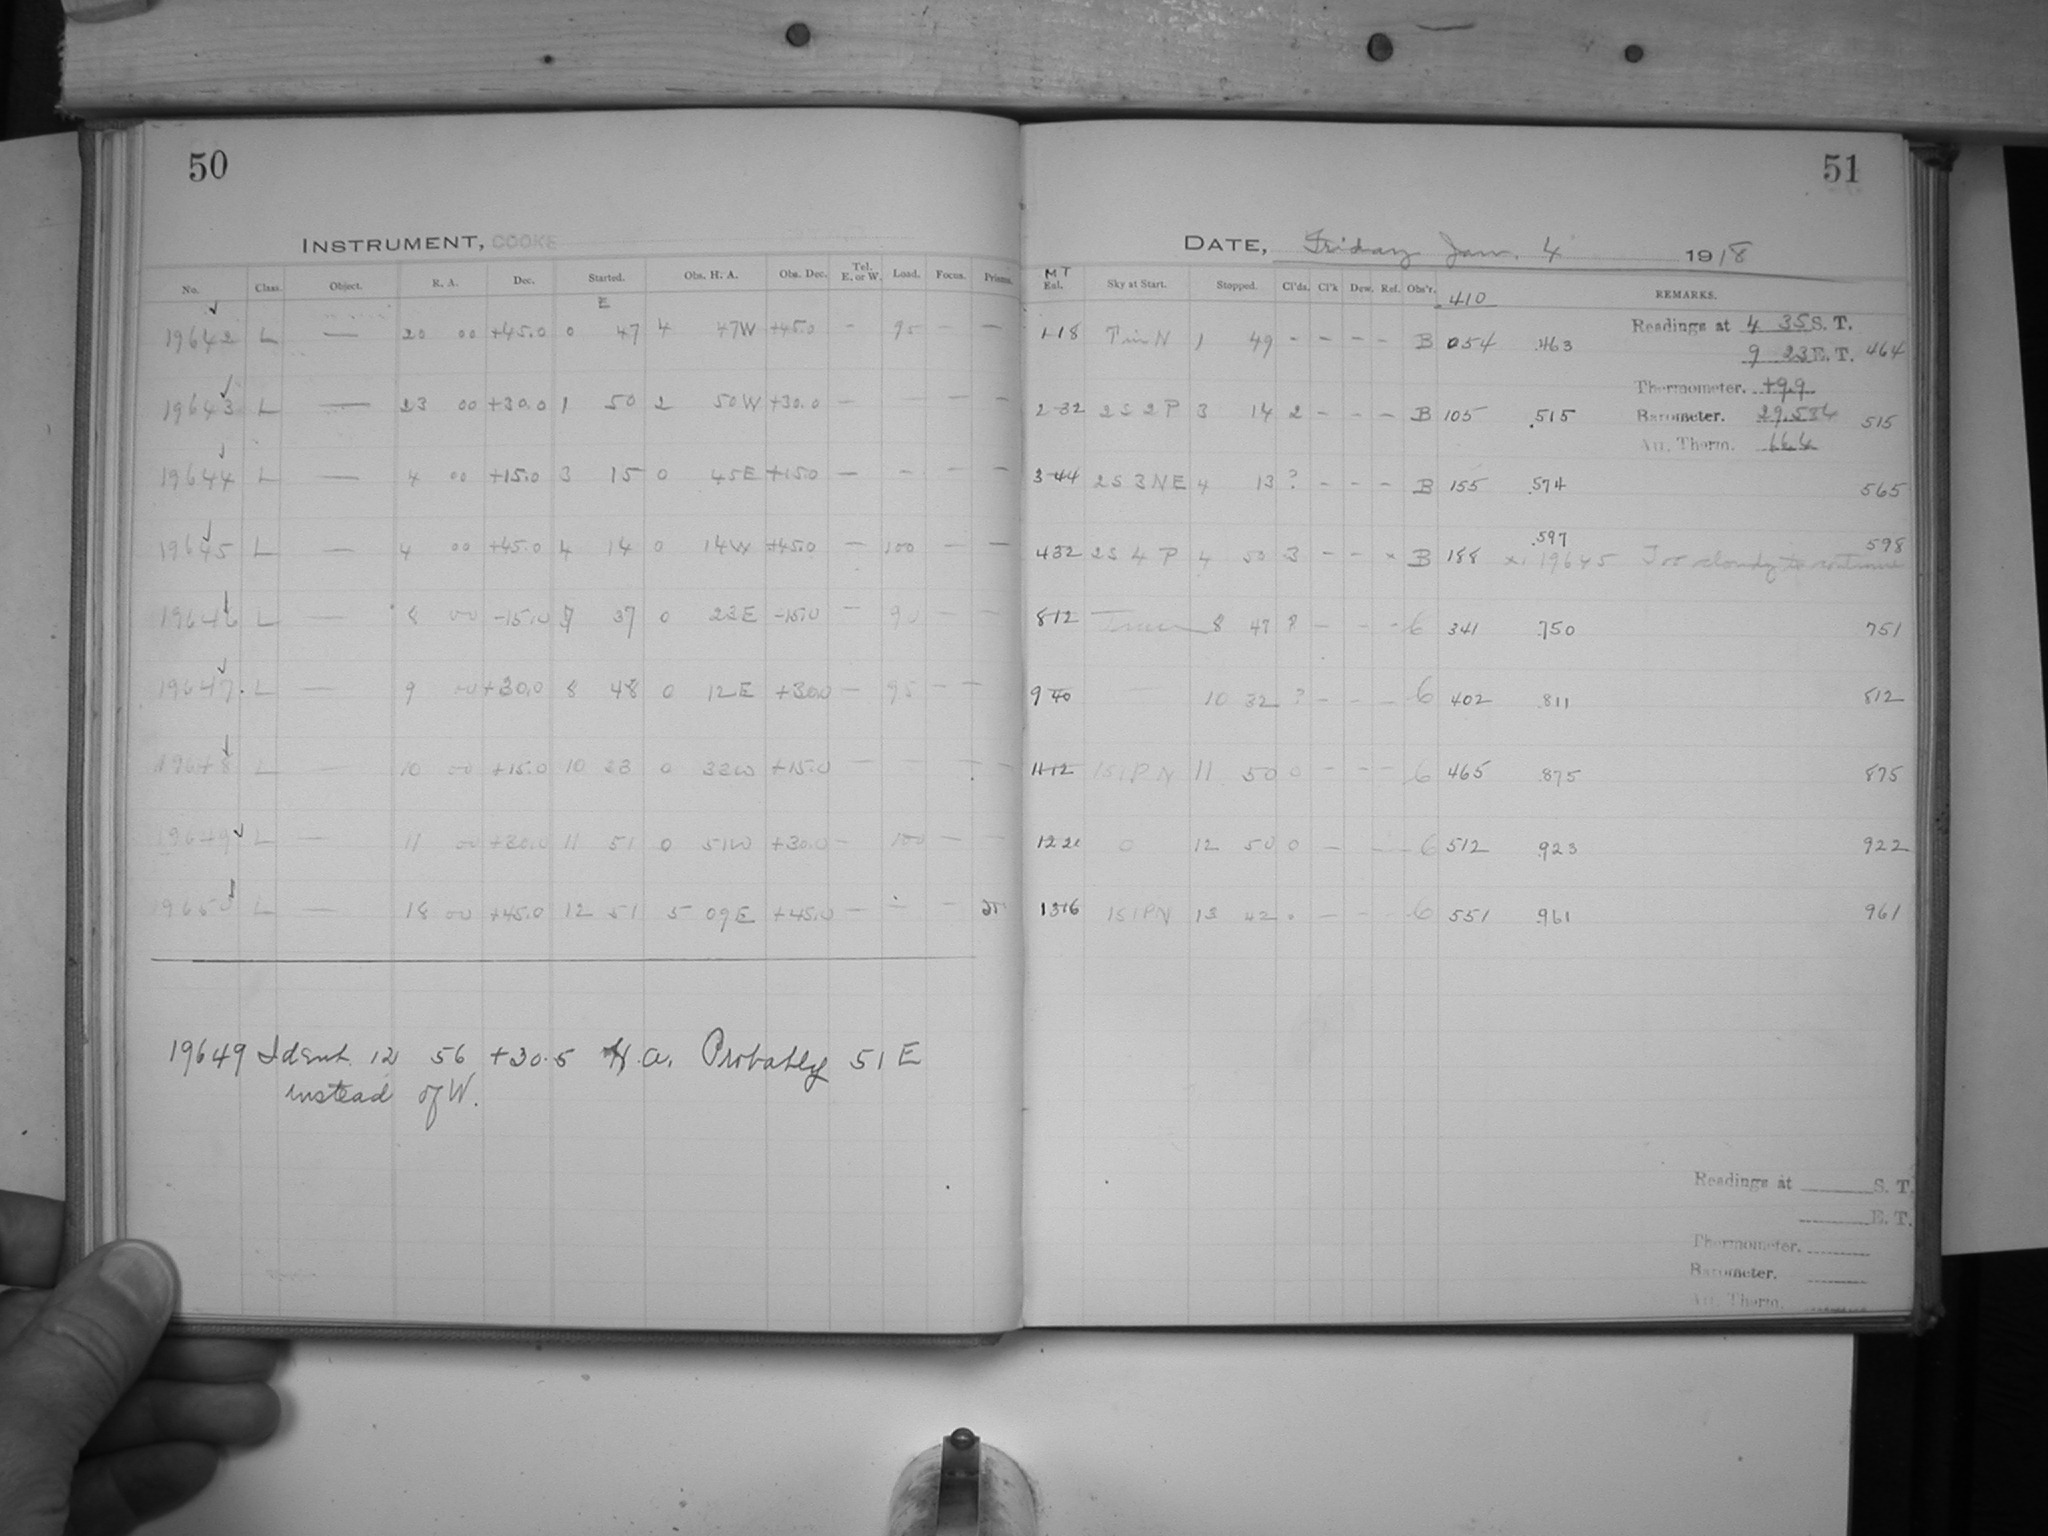 50
51
INSTRUMENT, COOKE
DATE, Friday Jan. 4 1918
No. Class. Object. R. A. Dec. Started. Obs. H. A. Obs. Dec. Tel. E. or W. Load. Focus. Prisms.
M T Eal. Sky at Start. Stopped. Cl'ds. Cl'k Dew. Ref. Obs'r. 410 REMARKS.
19642 L — 20 00 +45.0 0 47 4 47W +45.0 - 95 — —
1 18 N 1 49 - - - - B 054 .463
Readings at 4 35 S. T.
9 23 E. T. 464
Thermometer. +9.9
Barometer. 29.584
Att. Therm. 66.4
19643 L — 23 00 +30.0 1 50 2 50W +30.0 — - - -
2 32 2S 2P 3 14 2 - - - B 105 .515 515
19644 L — 4 00 +15.0 3 15 0 45E +15.0 — - - -
3 44 2S 3NE 4 13 ? - - - B 155 .574 565
19645 L — 4 00 +45.0 4 14 0 14W +45.0 — 100 - —
4 32 2S 4 P 4 50 3 - - × B 188 .597 598
×. 19645 Too cloudy to continue
19646 L — 8 00 -15.0 7 37 0 23E -15.0 — 90 - -
8 12 8 47 ? - - - 6 341 .750 751
19647 L — 9 00 +30.0 8 48 0 12E +30.0 — 95 - -
9 40 10 32 ? - - - 6 402 .811 812
19648 L — 10 00 +15.0 10 23 0 32W +15.0 — - - -
11 12 1S 1P N 11 50 0 - - - 6 465 .875 875
19649 L — 11 00 +30.0 11 51 0 51W +30.0 - 100 — —
12 21 0 12 50 0 - - - 6 512 .923 922
19650 L — 18 00 +45.0 12 51 5 09E +45.0 — — -
13 16 1S 1PN 13 42 - - - 6 551 .961 961
19649 Ident. 12 56 +30.5 H.A. Probably 51 E
instead of W.
Readings at S. T.
E. T.
Thermometer.
Barometer.
Att. Therm.